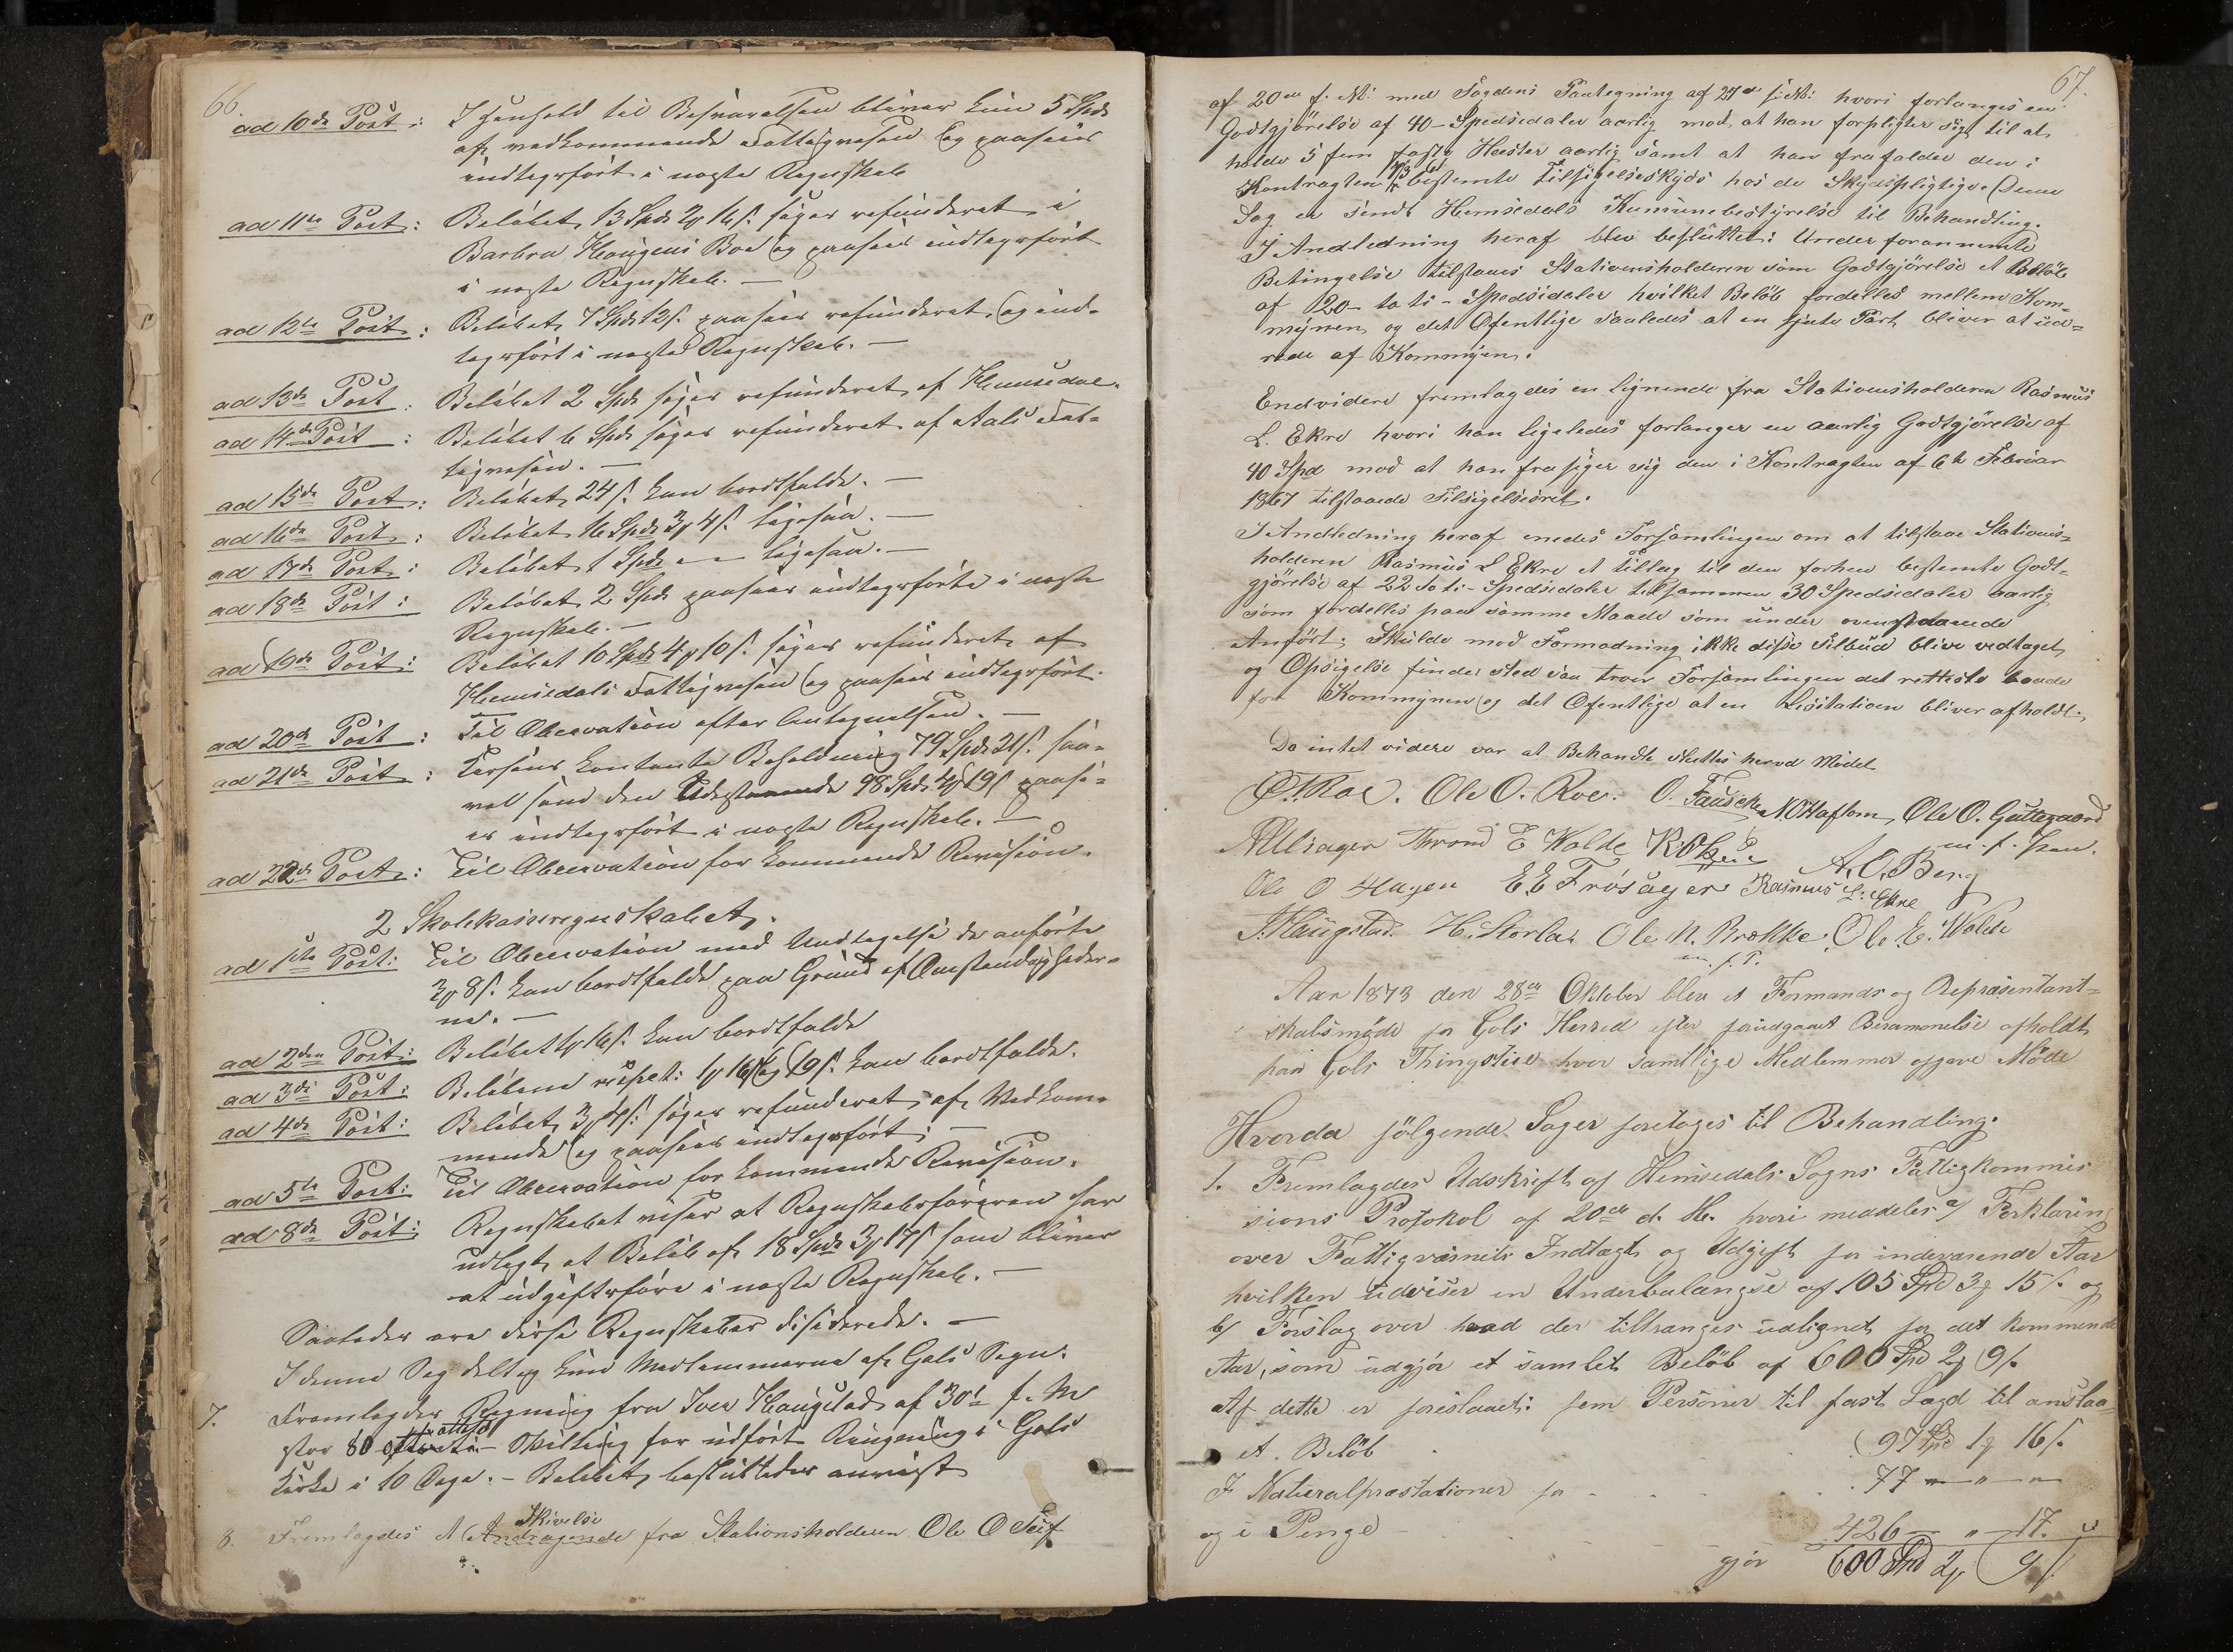 66.
ad 10de Post: I Henhold til Besvarelsen bliver kun 5 Spd
af vedkommende Fattigvæsen og paasees
indtægtsført i næste Regnskab
ad 11te Post: Beløbet 13 Spd 2 16 s. søges refunderet i
Barbra Haugens Boe og paasees indtægtsført
i næste Regnskab. —
ad 12te Post: Beløbet 7 Spd 12 s. paasees refunderet og ind-
tægtsført i næste Regnskab. —
ad 13de Post: Beløbet 2 Spd søges refunderet af Hemsedal.
ad 14de Post: Beløbet 6 Spd søges refunderet af Aals Fat-
tigvæsen. —
ad 15de Post: Beløbet 24 s. kan bortfalde. —
ad 16de Post: Beløbet 16 Spd 3 4 s. ligesaa. —
ad 17de Post: Beløbet 1 Spd ligesaa. —
ad 18de Post: Beløbet 2 Spd paasees indtægtsførte i næste
Regnskab. —
ad 19de Post: Beløbet 10 Spd 4 10 s. søges refunderet af
Hemsedals Fattigvæsen og paasees indtægtsført.
ad 20de Post: Til Observation efter Antegnelsen. —
ad 21de Post: Kassens kontante Beholdning 79 Spd 21 s. saa-
vel som den Udestaaende 98 Spd 4 19 s paase-
es indtægtsført i næste Regnskab. —
ad 22de Post: Til Observation for kommende Revision.
2 Skolekasseregnskabet.
ad 1ste Post: Til Observation med Undtagelse de anførte
3 8 s. kan bortfalde paa Grund af Omstændigheder-
ne. —
ad 2den Post: Beløbet 1 16 s. kan bortfalde
ad 3die Post: Beløbene respet: 1 16 s og 19 s. kan bortfalde.
ad 4de Post: Beløbet 3 4 s. søges refunderet af Vedkom-
mende og paasees indtægtsført. —
ad 5te Post: Til Observation for kommende Revision.
ad 8de Post: Regnskabet viser at Regnskabsføreren har
udlagt et Beløb af 18 Spd 3 17 s som bliver
at udgiftsføre i næste Regnskab. —
Saaledes ere disse Regnskaber disiderede. —
I denne Sag deltog kun Medlemmerne af Gols Sogn.
7. Fremlagdes Regning fra Iver Haugstad af 30te f. M
stor 80 otteti Skilling for udført Ringning i Gols
Kirke i 10 Dage. — Beløbet besluttedes anvist
Skivelse
8. Fremlagdes et Andragende fra Stationsholderen Ole O Tuf
67.
af 20de f. M. med Fogdens Paategning af 27de s. M. hvori forlanges en
Godtgjörelse af 40 - Spedsiedaler aarlig mod at han forpligter sig til at
holde 5 fem faste Hæster aarlig samt at han frafalder den i
Kontragten bestemte Tilsigelseskyds hos de Skydspligtige. Denne
Sag er sendt Hemsedals Kumunebestyrelse til Behandling.
I Andledning heraf blev besluttet: Under forannevnte
Betingelse tilstaaes Stationsholderen som Godtgjörelse et Belöb
af 20 - to ti - Spedsidaler hvilket Belöb fordelles mellem Kom-
mynen og det Ofentlige saaledes at en fjute Part bliver at ud-
rede af Kommynen.
Endvidere fremlagdes en lignende fra Stationsholderen Rasmus
L. Ekre hvori han ligeledes forlanger en aarlig Godtgjörelse af
40 Spd mod at han frasiger sig den i Kontragten af 6te Februar
1867 tilstaaede Tilsigelsesret.
I Andledning heraf enedes Forsamlingen om at tilstaae Stations-
holderen Rasmus L Ekre et Tillæg til den forhen bestemte Godt-
gjörelse af 22 to ti - Spedsidaler tilsammen 30 Spedsidaler aarlig
som fordelles paa samme Maade som under ovenstaaende
Anfört; Skulde mod Formodning ikke disse Tilbud blive vedtaget
og Opsigelse finder sted saa troer Forsamlingen det retteste baade
for Kommynen og det Ofentlige at en Lisitation bliver afholdt.
Da intet videre var at Behandte sluttes herved Mödet
O.T. Roe. Ole O. Roe. O. Fauske N.O Haftorn, Ole O. Guttegaard
m. f. Pen.
A Ulsager Thrond E Wolde K. Ø A. O. Berg
Ole O Hagen E E Frösager Rasmus L. Ekre
I. Haugstad. H. Storla. Ole N. Brokke Ole E. Wolde
m. f. P.
Aar 1873 den 28de Oktober blev et Formands og Repræsentant-
skabsmøde for Gols Herred efter forudgaaet Berammelse afholdt
paa Gols Thingstue hvor samtlige Medlemmer afgave Møde
Hvorda følgende Sager foretoges til Behandling.
1. Fremlagdes Udskrift af Hemsedals Sogns Fattigkommis
sions Protokol af 20de d. M. hvori meddeles a/ Forklaring
over Fattigvæsnets Indtægt og Udgift for indeværende Aar
hvilken udviser en Underbalangse af 105 Spd 3 15 s. og
b/ Forslag over hvad der tiltrænges udlignet for det kommende
Aar, som udgjør et samlet Beløb af 600 Spd 2 9 s.
Af dette er foreslaaet: fem Personer til fast Lægd til anslaa-
et Beløb . 97 Spd 1 16 s.
I Naturalpræstationer for . . . . 77 — " — "
og i Penge - 426 — " — 17. "
gjør 600 Spd 2 9 s.